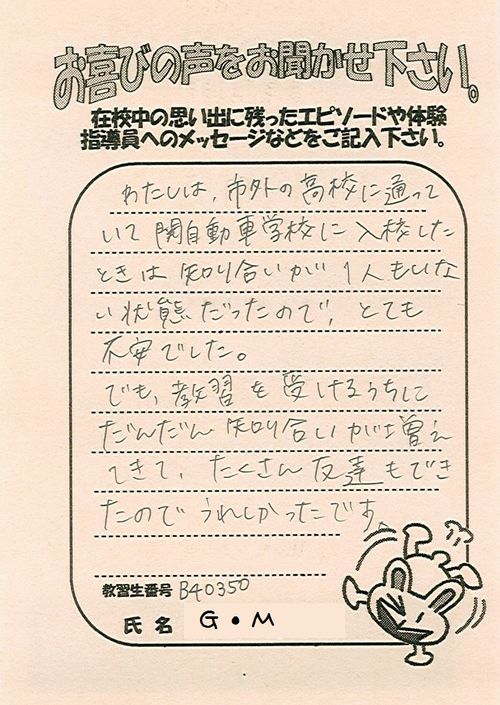 お喜びの声をお聞かせ下さい。
在校中の思い出に残ったエピソードや体験
指導員へのメッセージなどをご記入下さい。
わたしは、市外の高校に通って
いて関自動車学校に入校した
ときは知り合いが1人もいな
い状態だったので、とても
不安でした。
でも、教習を受けるうちに
だんだん知り合いが増え
てきて、たくさん友達もでき
たのでうれしかったです。
教習生番号 B40350
氏名 G・M